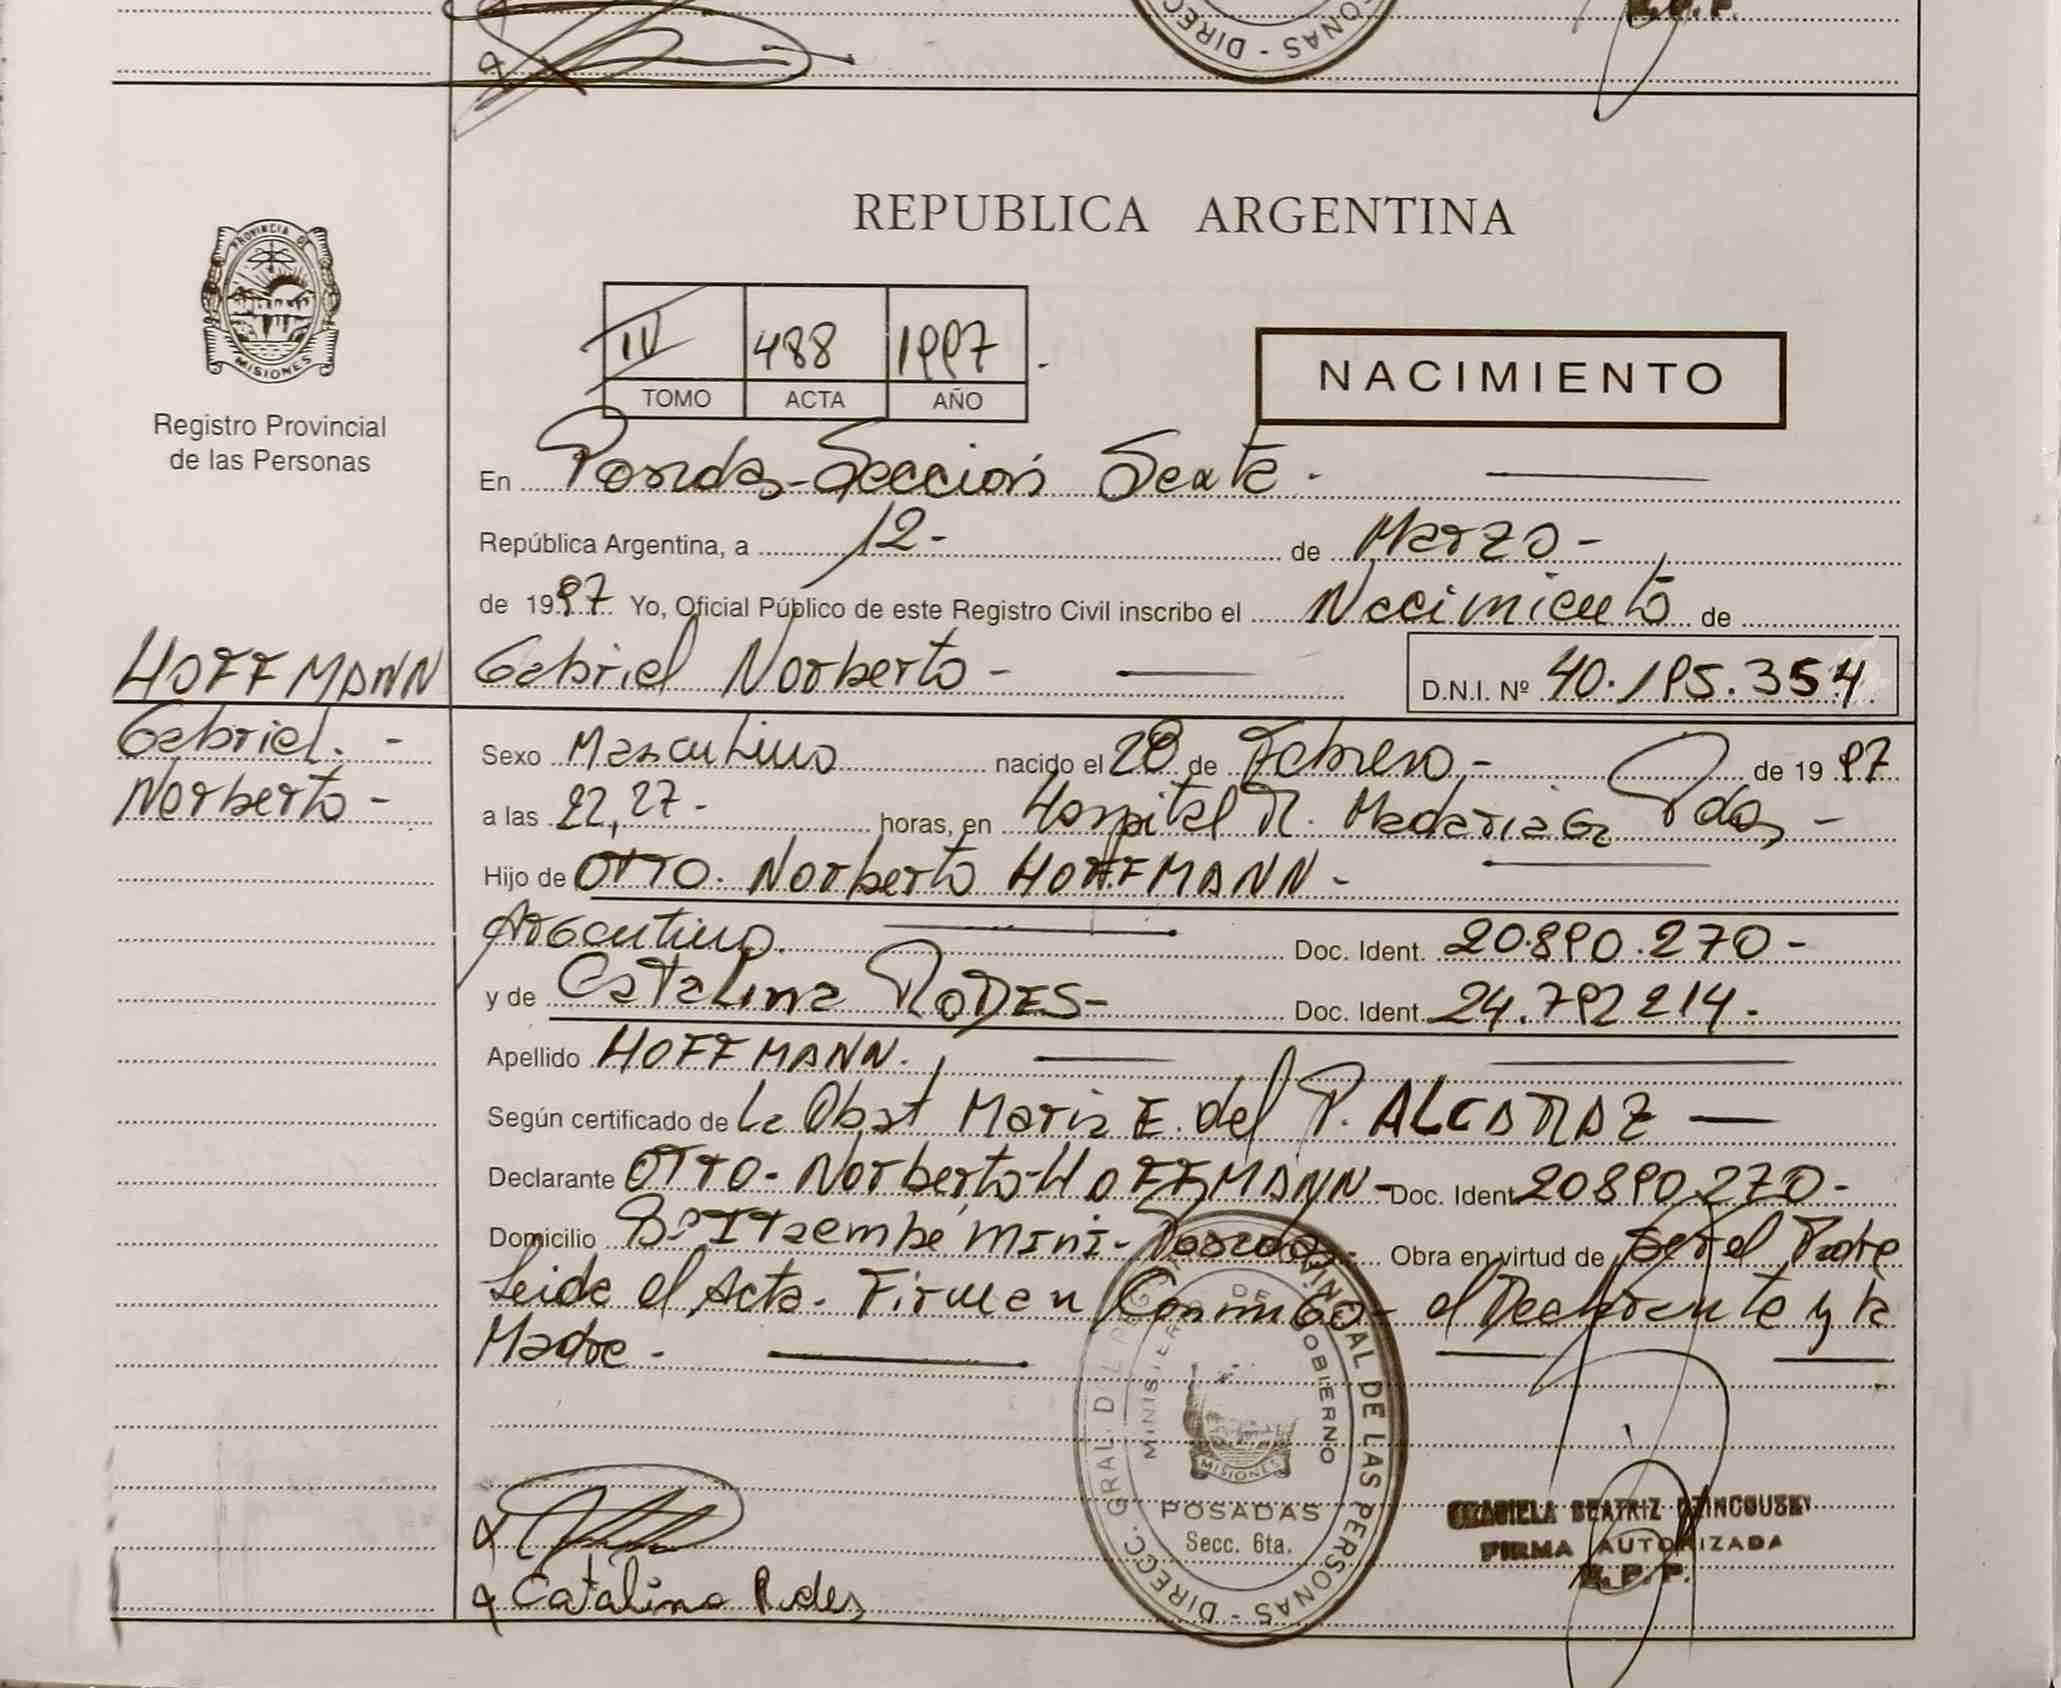 DIRECC
ONAS
PROVINCIA DE
MISIONES
Registro Provincial
de las Personas
REPUBLICA ARGENTINA
IV 488 1997
TOMO ACTA AÑO
NACIMIENTO
En Posadas - Sección Sexta -
República Argentina, a 12 - de Marzo -
de 1997 Yo, Oficial Público de este Registro Civil inscribo el Nacimiento de
HOFFMANN Gabriel Norberto - D.N.I. Nº 40.195.354
Gabriel. - Sexo Masculino nacido el 28 de Febrero - de 1997
Norberto - a las 22,27 - horas, en Hospital R. Madariaga Pdas -
Hijo de OTTO. Norberto HOFFMANN -
Argentino. Doc. Ident. 20.890.270 -
y de Catalina RODES - Doc. Ident. 24.792214 -
Apellido HOFFMANN.
Según certificado de La Obst Maria E. del P. ALCARAZ
Declarante OTTO - Norberto - HOFFMANN - Doc. Ident 20890270 -
Domicilio Bº Itaembé Mini - Posadas - Obra en virtud de ser el Padre
Leida el Acta. Firman Conmigo - el Declarante y la
Madre -
DIRECC. GRAL. DEL REG. PROVINCIAL DE LAS PERSONAS
MINISTERIO DE GOBIERNO
MISIONES
POSADAS
Secc. 6ta.
BEATRIZ
FIRMA AUTORIZADA
R.P.P.
Catalina Rodes